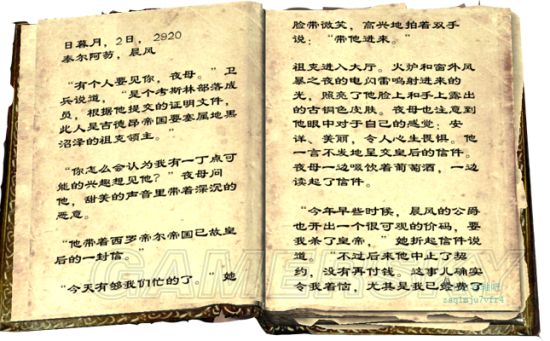 日暮月，2日，2920
泰尔阿劳，晨风
“有个人要见你，夜母。”卫
兵说道，“是个考斯林部落成
员，根据他提交的证明文件，
此人是吉德昂帝国要塞属地黑
沼泽的祖克领主。”
“你怎么会认为我有一丁点可
能的兴趣想见他？”夜母问
他，甜美的声音里带着深沉的
恶意。
“他带着西罗帝尔帝国已故皇
后的一封信。”
“今天有够我们忙的了。”她
脸带微笑，高兴地拍着双手
说：“带他进来。”
祖克进入大厅。火炉和窗外风
暴之夜的电闪雷鸣射进来的
光，照亮了他脸上和手上露出
的古铜色皮肤。夜母也注意到
他眼中对于自己的感觉，安
详、美丽，令人心生畏惧。他
一言不发地呈交皇后的信件。
夜母一边啜饮着葡萄酒，一边
读起了信件。
“今年早些时候，晨风的公爵
也开出一个很可观的价码，要
我杀了皇帝，”她折起信件说
道。“不过后来他中止了契
约，没有再付钱。这事儿确实
令我着恼，尤其是我已经费了
GAMERSKY
zaqimju7vfr4